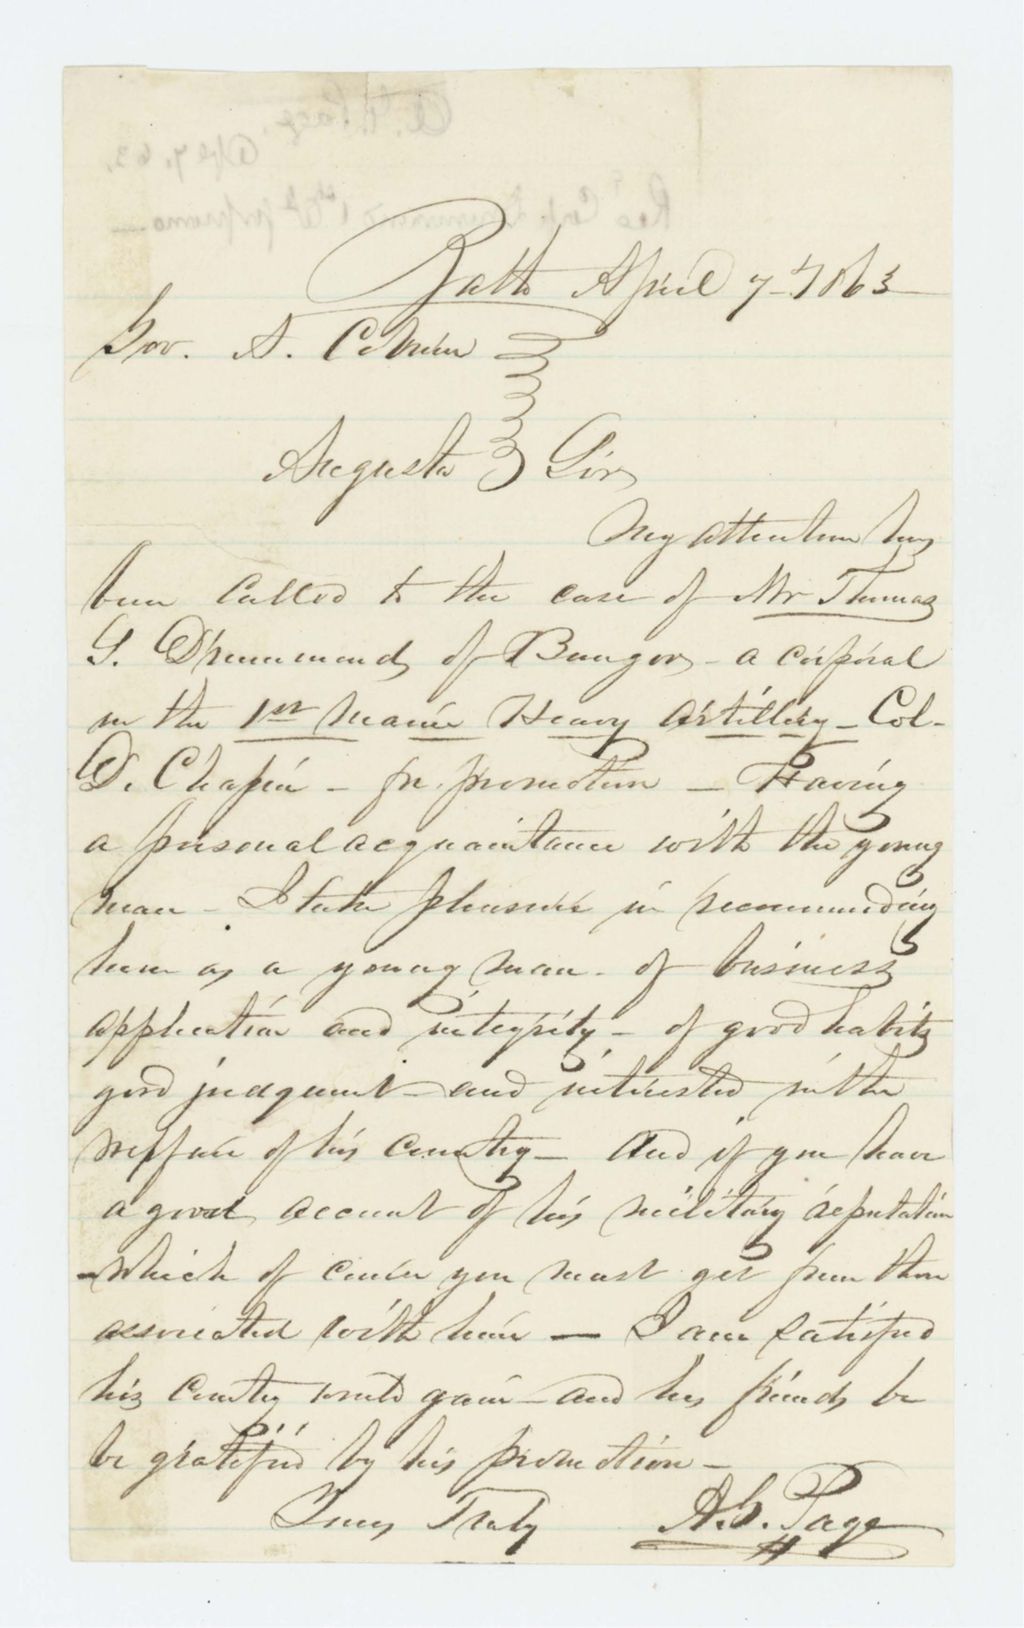 Bath April 7 - 1863
Gov. A. Coburn
Augusta Sir
My attention has
been called to the case of Mr Thomas
G. Drummond, of Bangor - a corporal
in the 1st Maine Heavy Artillery - Col.
D. Chapin - for promotion - Having
a personal acquaintance with the young
man - I take pleasure in recommending
him as a young man - of business
application and integrity - of good habits
good judgment - and interested in the
welfare of his country - And if you have
a good account of his military reputation
- which of course you must get from those
associated with him - I am satisfied
his country would gain - and his friends be
be gratified by his promotion -
Yours Truly A. G. Page